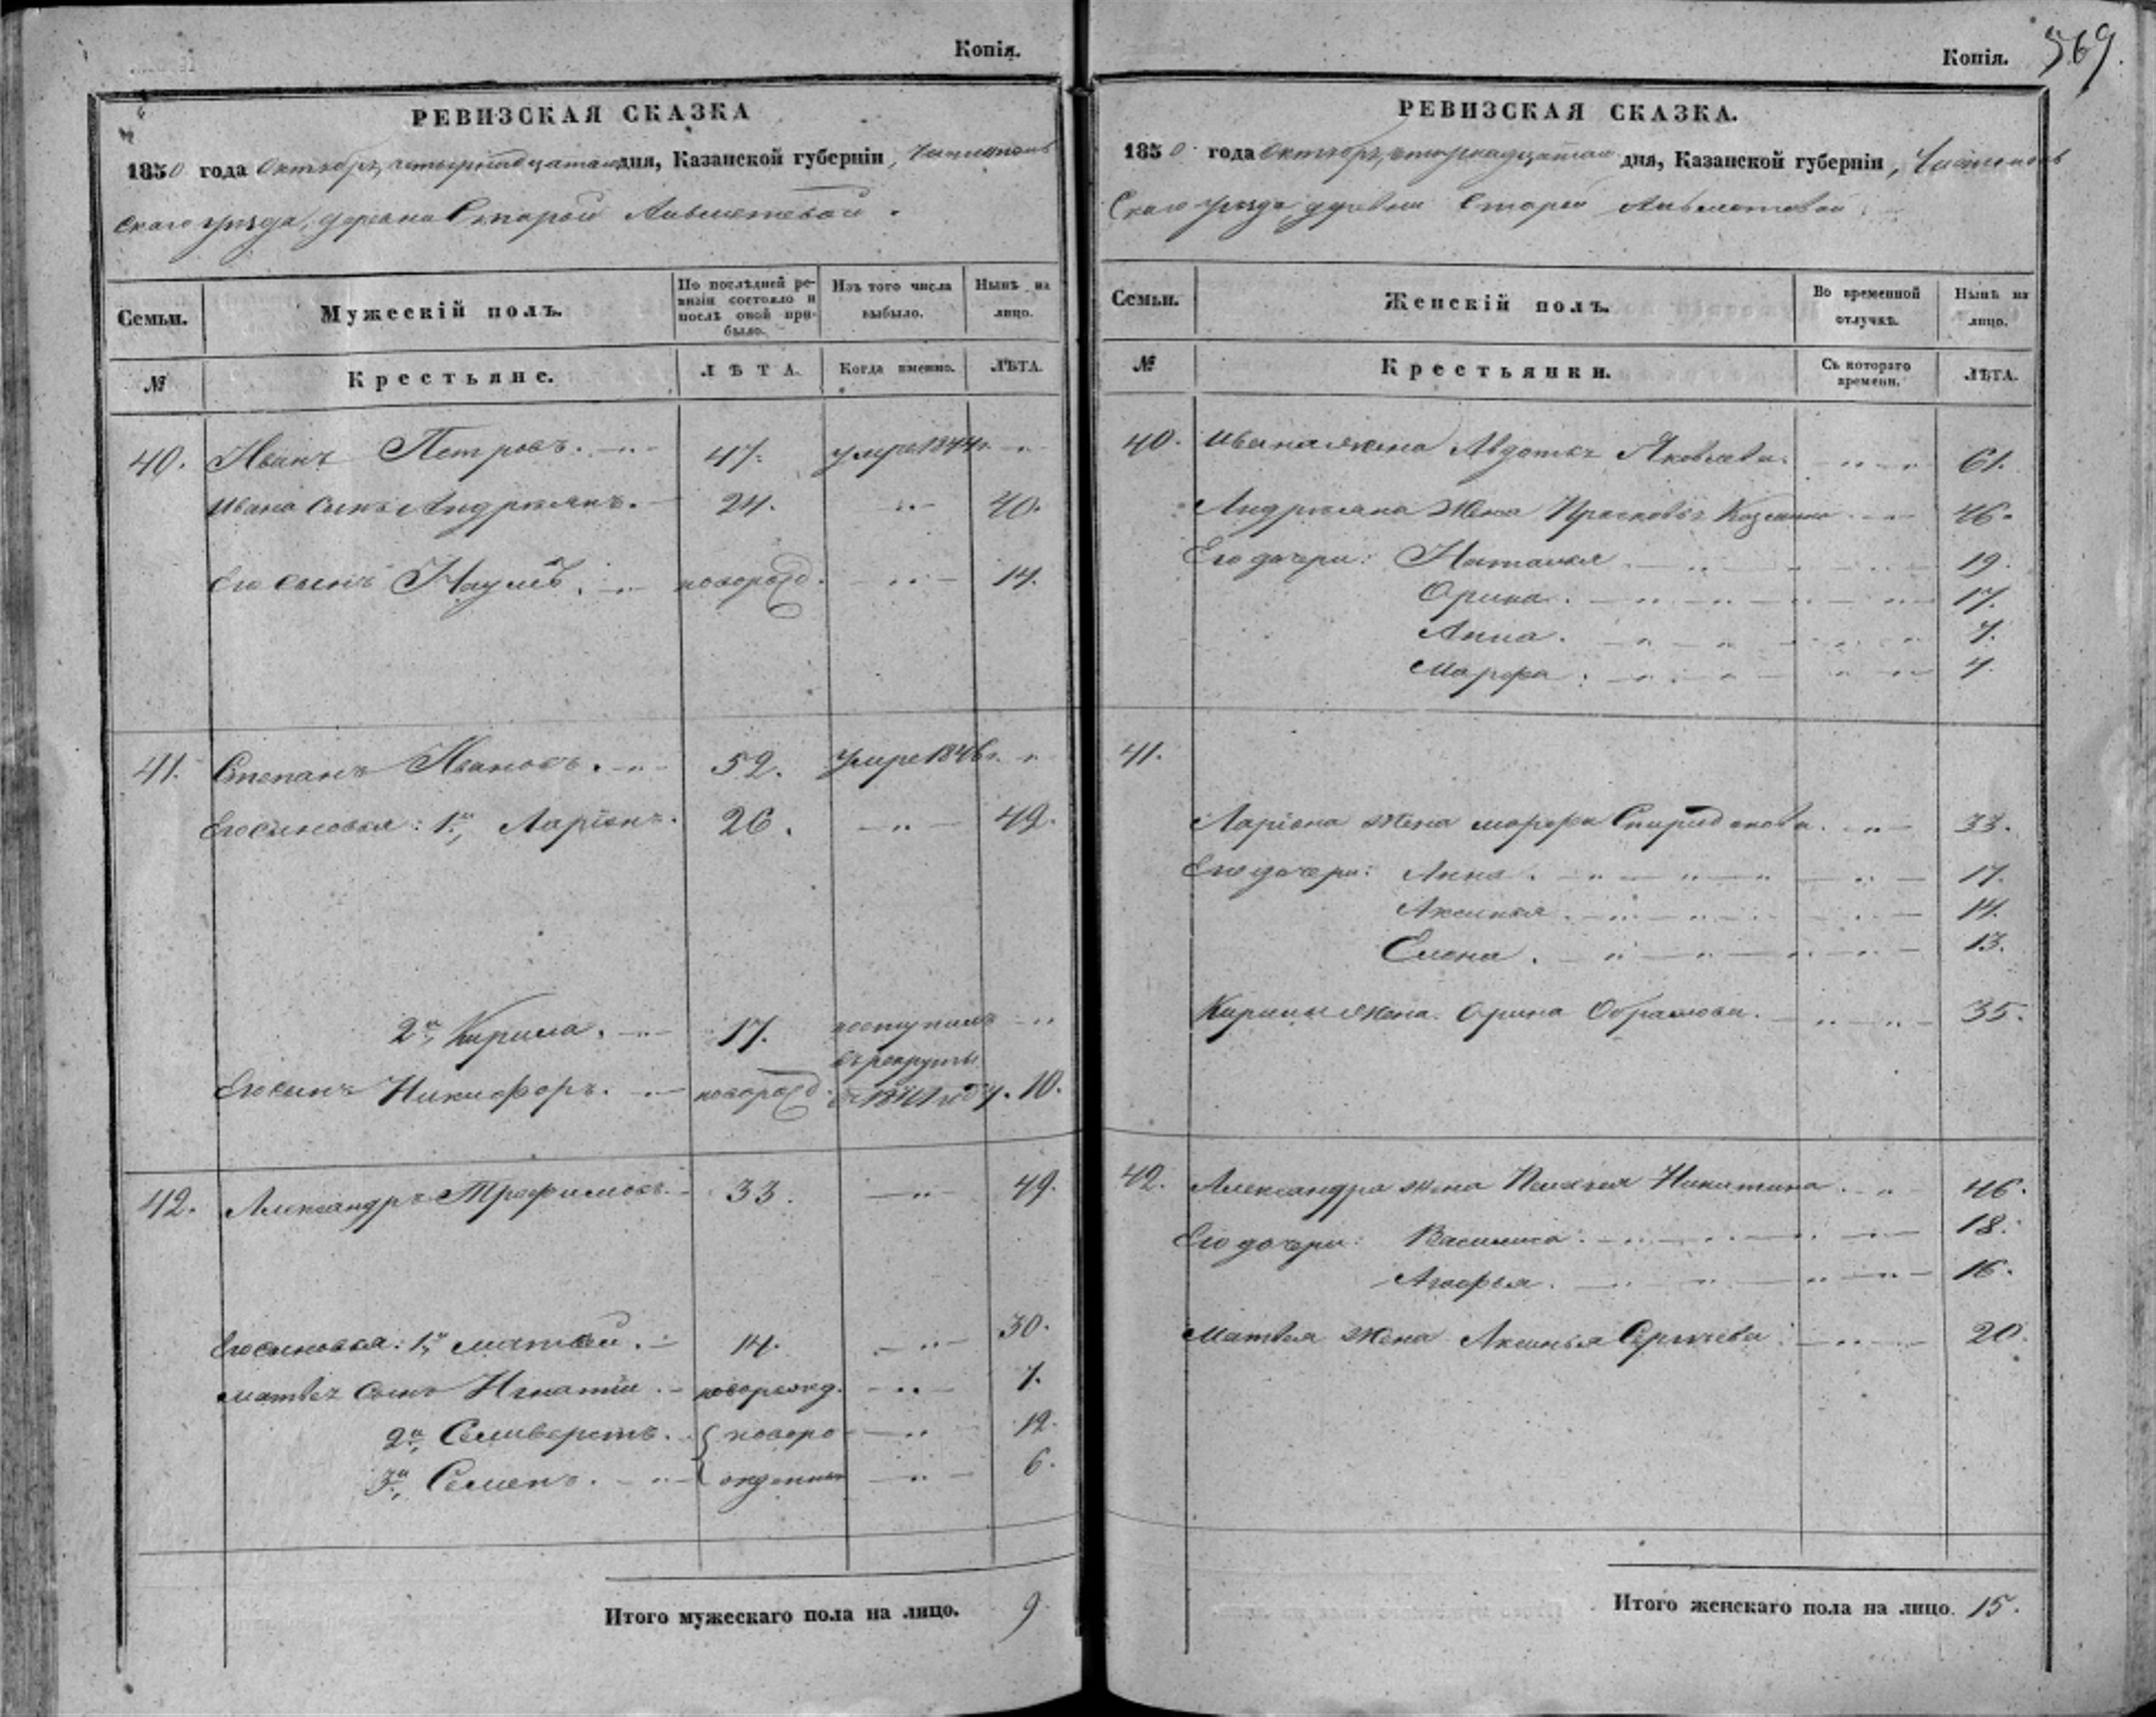 Копія.
РЕВИЗСКАЯ СКАЗКА
1850 года Октября четырнадцатаго дня, Казанской губерніи, Чистополь
скаго уезда, деревни Старой
Семьи.
Мужескій полъ.
По послѣдней ре-
визіи состояло и
послѣ оной при-
было.
Изъ того числа
выбыло.
Нынѣ на
лицо.
№
Крестьяне.
ЛѢТА.
Когда именно.
ЛѢТА.
40. Иванъ Петровъ. 47. умре 1844 г.
Ивана сынъ Андреянъ. 24. 40.
Его сынъ Наумъ. новорожд. 14.
41. Степанъ Ивановъ. 52. умре 1846 г.
Его сыновья: 1й, Ларіонъ. 26. 42.
2й, Кирила. 17. поступилъ
въ рекруты
Его сынъ Никифоръ. новорожд. въ 1841 году. 10.
42. Александръ Трофимовъ. 33. 49.
Его сыновья: 1й, Матвѣй. 14. 30.
Матвѣя сынъ Игнатій. новорожд. 7.
2й, Селиверстъ. новоро 12.
3й, Семенъ. жденные 6.
Итого мужескаго пола на лицо. 9.
Копія. 569.
РЕВИЗСКАЯ СКАЗКА.
1850 года Октября четырнадцатаго дня, Казанской губерніи, Чистополь
скаго уезда деревни Старой
Семьи.
Женскій полъ.
Во временной
отлучкѣ.
Нынѣ на
лицо.
№
Крестьянки.
Съ котораго
времени.
ЛѢТА.
40. Ивана жена Авдотья Яковлева. 61.
Андреяна жена Прасковья Козмина 46.
Его дочери: Наталья 19.
Орина. 17.
Анна. 7.
Марфа. 4.
41.
Ларіона жена Марфа Спиридонова. 33.
Его дочери: Анна. 17.
Аксинья. 14.
Елена. 13.
Кирилы жена Орина Обрамова. 35.
42. Александра жена Пелагея Никитина 46.
Его дочери: Василиса. 18.
Агафья. 16.
Матвѣя жена Аксинья Сергѣева 20.
Итого женскаго пола на лицо 15.